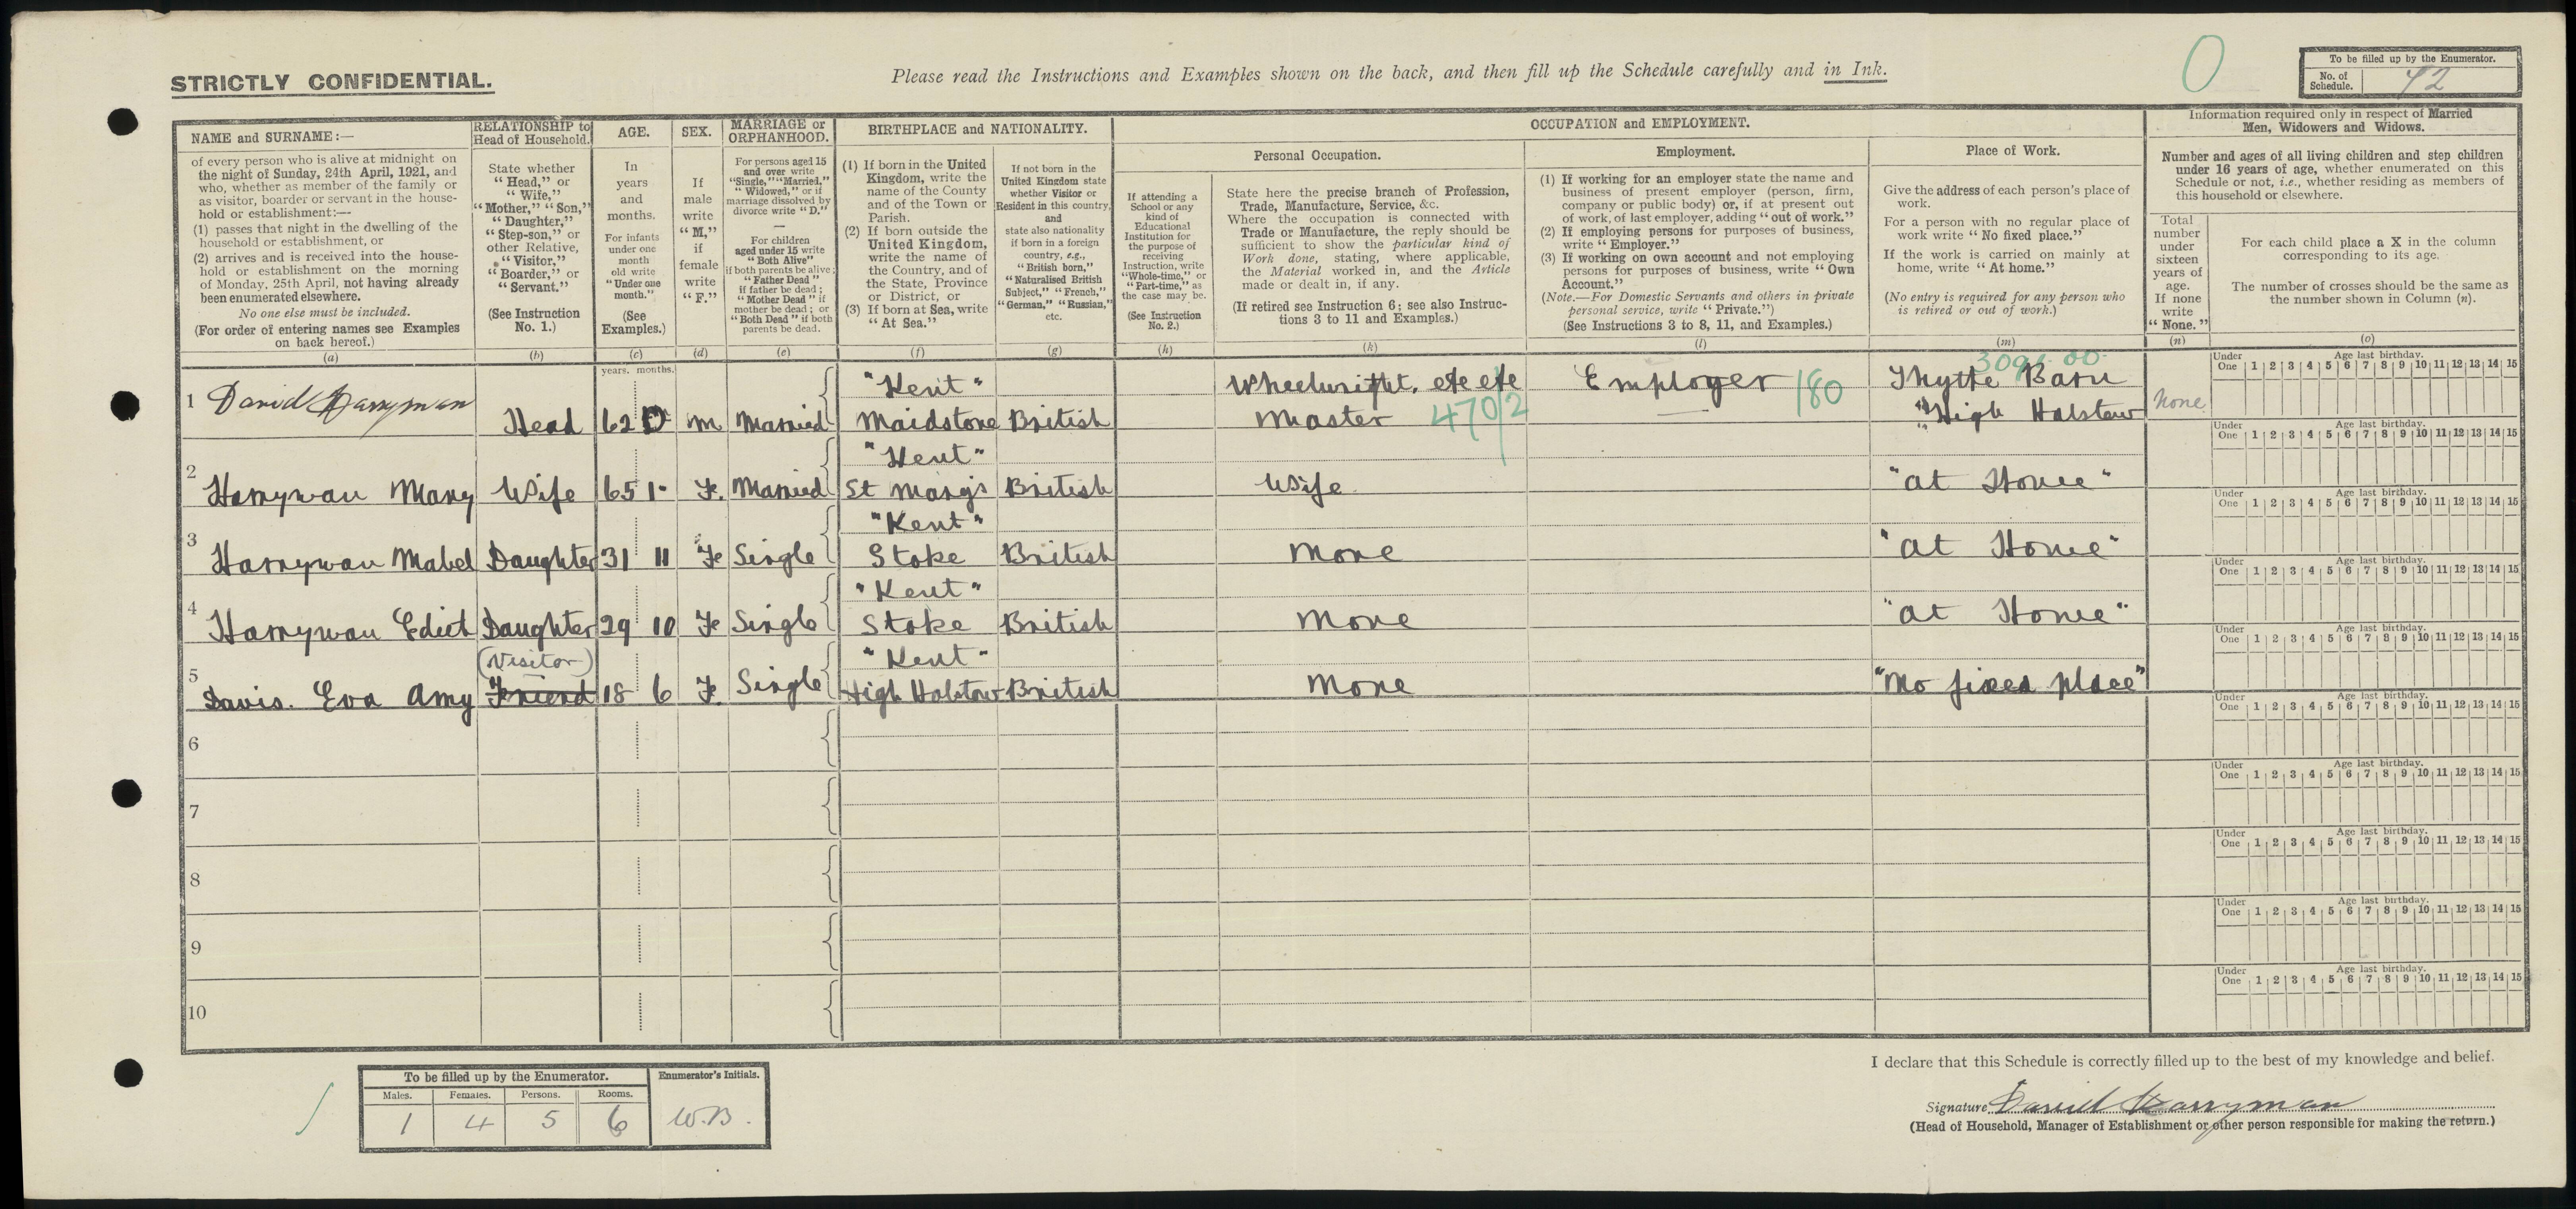 STRICTLY CONFIDENTIAL.
Please read the Instructions and Examples shown on the back, and then fill up the Schedule carefully and in Ink.
0
To be filled up by the Enumerator.
No. of Schedule. 42
NAME and SURNAME:—
of every person who is alive at midnight on
the night of Sunday, 24th April, 1921, and
who, whether as member of the family or
as visitor, boarder or servant in the house-
hold or establishment:—
(1) passes that night in the dwelling of the
household or establishment, or
(2) arrives and is received into the house-
hold or establishment on the morning
of Monday, 25th April, not having already
been enumerated elsewhere.
No one else must be included.
(For order of entering names see Examples
on back hereof.)
(a)
RELATIONSHIP to
Head of Household.
State whether
"Head," or
"Wife,"
"Mother," "Son,"
"Daughter,"
"Step-son," or
other Relative,
"Visitor,"
"Boarder," or
"Servant."
(See Instruction
No. 1.)
(b)
AGE.
In
years
and
months.
For infants
under one
month
old write
"Under one
month."
(See
Examples.)
(c)
SEX.
If
male
write
"M,"
if
female
write
"F."
(d)
MARRIAGE or
ORPHANHOOD.
For persons aged 15
and over write
"Single," "Married,"
"Widowed," or if
marriage dissolved by
divorce write "D."
For children
aged under 15 write
"Both Alive"
if both parents be alive;
"Father Dead"
if father be dead;
"Mother Dead" if
mother be dead; or
"Both Dead" if both
parents be dead.
(e)
BIRTHPLACE and NATIONALITY.
(1) If born in the United
Kingdom, write the
name of the County
and of the Town or
Parish.
(2) If born outside the
United Kingdom,
write the name of
the Country, and of
the State, Province
or District, or
(3) If born at Sea, write
"At Sea."
(f)
If not born in the
United Kingdom state
whether Visitor or
Resident in this country,
and
state also nationality
if born in a foreign
country, e.g.,
"British born,"
"Naturalised British
Subject," "French,"
"German," "Russian,"
etc.
(g)
OCCUPATION and EMPLOYMENT.
Personal Occupation.
If attending a
School or any
kind of
Educational
Institution for
the purpose of
receiving
Instruction, write
"Whole-time," or
"Part-time," as
the case may be.
(See Instruction
No. 2.)
(h)
State here the precise branch of Profession,
Trade, Manufacture, Service, &c.
Where the occupation is connected with
Trade or Manufacture, the reply should be
sufficient to show the particular kind of
Work done, stating, where applicable,
the Material worked in, and the Article
made or dealt in, if any.
(If retired see Instruction 6; see also Instruc-
tions 3 to 11 and Examples.)
(k)
Employment.
(1) If working for an employer state the name and
business of present employer (person, firm,
company or public body) or, if at present out
of work, of last employer, adding "out of work."
(2) If employing persons for purposes of business,
write "Employer."
(3) If working on own account and not employing
persons for purposes of business, write "Own
Account."
(Note.—For Domestic Servants and others in private
personal service, write "Private.")
(See Instructions 3 to 8, 11, and Examples.)
(l)
Place of Work.
Give the address of each person's place of
work.
For a person with no regular place of
work write "No fixed place."
If the work is carried on mainly at
home, write "At home."
(No entry is required for any person who
is retired or out of work.)
(m)
Information required only in respect of Married
Men, Widowers and Widows.
Number and ages of all living children and step children
under 16 years of age, whether enumerated on this
Schedule or not, i.e., whether residing as members of
this household or elsewhere.
Total
number
under
sixteen
years of
age.
If none
write
"None."
(n)
For each child place a X in the column
corresponding to its age.
The number of crosses should be the same as
the number shown in Column (n).
(o)
years. months.
1 David Harryman Head 62 0 M Married "Kent" Maidstone British Wheelwright. etc etc Master 470/2 Employer 180 High Halstow None
Under One Age last birthday. 1 2 3 4 5 6 7 8 9 10 11 12 13 14 15
2 Harryman Mary Wife 65 1 Fe. Married "Kent" St Marys British Wife "at Home"
Under One Age last birthday. 1 2 3 4 5 6 7 8 9 10 11 12 13 14 15
3 Harryman Mabel Daughter 31 11 Fe Single "Kent" Stoke British None "at Home"
Under One Age last birthday. 1 2 3 4 5 6 7 8 9 10 11 12 13 14 15
4 Harryman Edict Daughter 29 10 Fe Single "Kent" Stoke British None "at Home"
Under One Age last birthday. 1 2 3 4 5 6 7 8 9 10 11 12 13 14 15
5 Davis. Eva Amy (Visitor) Friend 18 6 Fe. Single "Kent" High Halstow British None "No fixed place"
Under One Age last birthday. 1 2 3 4 5 6 7 8 9 10 11 12 13 14 15
6
Under One Age last birthday. 1 2 3 4 5 6 7 8 9 10 11 12 13 14 15
7
Under One Age last birthday. 1 2 3 4 5 6 7 8 9 10 11 12 13 14 15
8
Under One Age last birthday. 1 2 3 4 5 6 7 8 9 10 11 12 13 14 15
9
Under One Age last birthday. 1 2 3 4 5 6 7 8 9 10 11 12 13 14 15
10
Under One Age last birthday. 1 2 3 4 5 6 7 8 9 10 11 12 13 14 15
To be filled up by the Enumerator.
Males. Females. Persons. Rooms.
1 4 5 6
Enumerator's Initials.
W.B.
I declare that this Schedule is correctly filled up to the best of my knowledge and belief.
Signature David Harryman
(Head of Household, Manager of Establishment or other person responsible for making the return.)